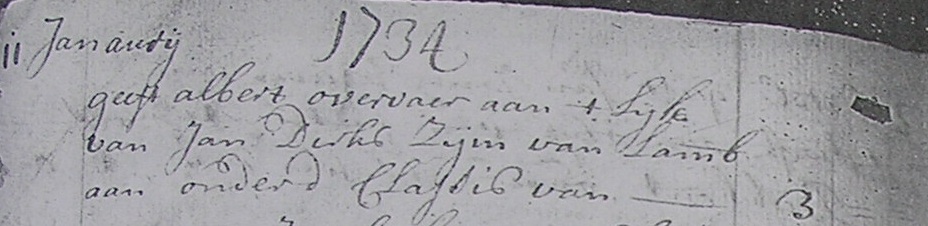 1734
11 Januarij
geeft albert overvaer aan t Lijk
van Jan Dirks Zijn van Lamb
aan onderd Classis van —— 3